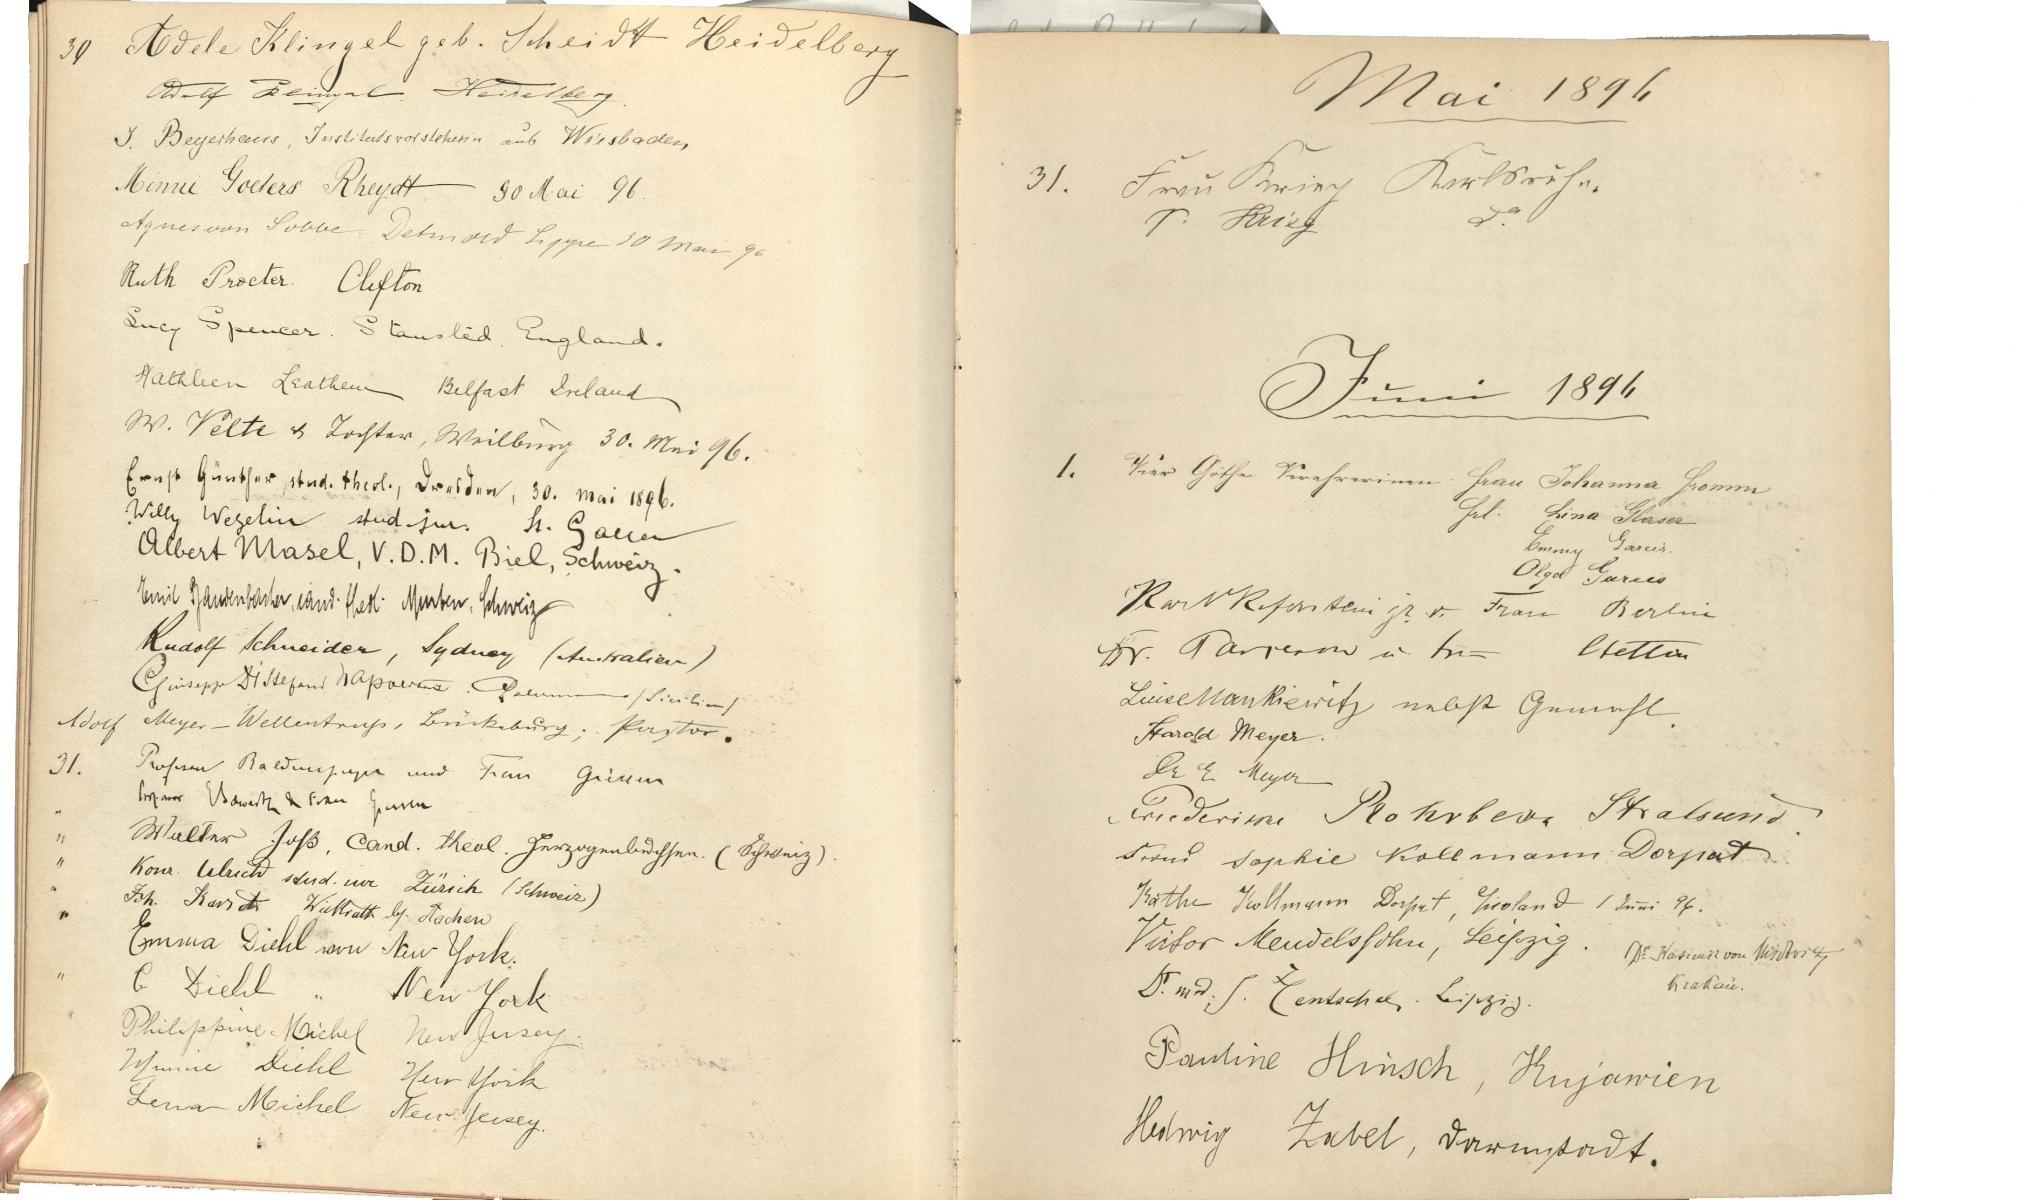 30 Adele Klingel geb. Scheidt Heidelberg
Adolf Klingel. Heidelberg.
J. Beyerhaus, Institutsvorsteherin aus Wiesbaden,
Minnie Goeters Rheydt 30 Mai 96.
Agnes von Sobbe. Detmold Lippe 30 Mai 96
Ruth Procter. Clifton
Lucy Spencer. Stansted. England.
Kathleen Leathem Belfast Ireland
W. Velte & Tochter, Weilburg 30. Mai 96.
Ernst Günther, stud. theol., Dresden, 30. Mai 1896.
Willy Wegelin stud. jur. St. Gallen
Albert Masel, V.D.M. Biel, Schweiz.
Emil cand. theol. Murten, Schweiz
Rudolf Schneider, Sydney (Australien)
Giuseppe Distefano (Sicilien)
Adolf Meyer-Wellentrup, Bückeburg; Pastor.
31. Professor und Frau Giessen
" Professor & Frau Giessen
" Walter Joß, Cand. theol. Herzogenbuchsen. (Schweiz).
" Konr. Ulrich stud. Zürich (Schweiz)
" Jsh. bj. Aachen
" Emma Diehl von New York.
" C Diehl " New York
" Philippine Michel New Jersey.
Minnie Diehl New York
Lena Michel New Jersey.
Mai 1896
31. Frau Krieg Karlsruhe.
P. Krieg do
Juni 1896
1. Vier Göthe Verehrerinnen. Frau Johanna Fromm
Frl. Lina Glaser
Emmy Gareis.
Olga Gareis
jr. u. Frau Berlin
Dr. u Stettin
Luise Mankiewitz nebst Gemahl.
Harald Meyer.
Dr E Meyer
Friederike Stralsund.
Sophie Kollmann Dorpat
Käthe Kollmann Dorpat, Livland 1 Juni 96.
Victor Mendelssohn, Leipzig. Dr Kasimir von
Krakau.
Dr. med. J. Leipzig.
Pauline Hinsch, Kujawien
Hedwig Zabel, Darmstadt.